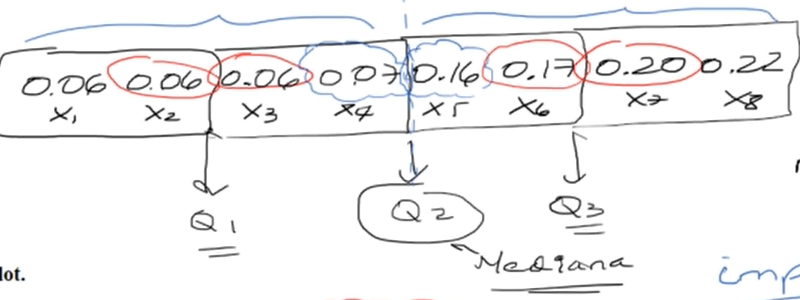 0.06 0.06 0.06 0.07 0.16 0.17 0.20 0.22
X1 X2 X3 X4 X5 X6 X7 X8
Q1 Q2 Q3
Mediana
lot.
imp